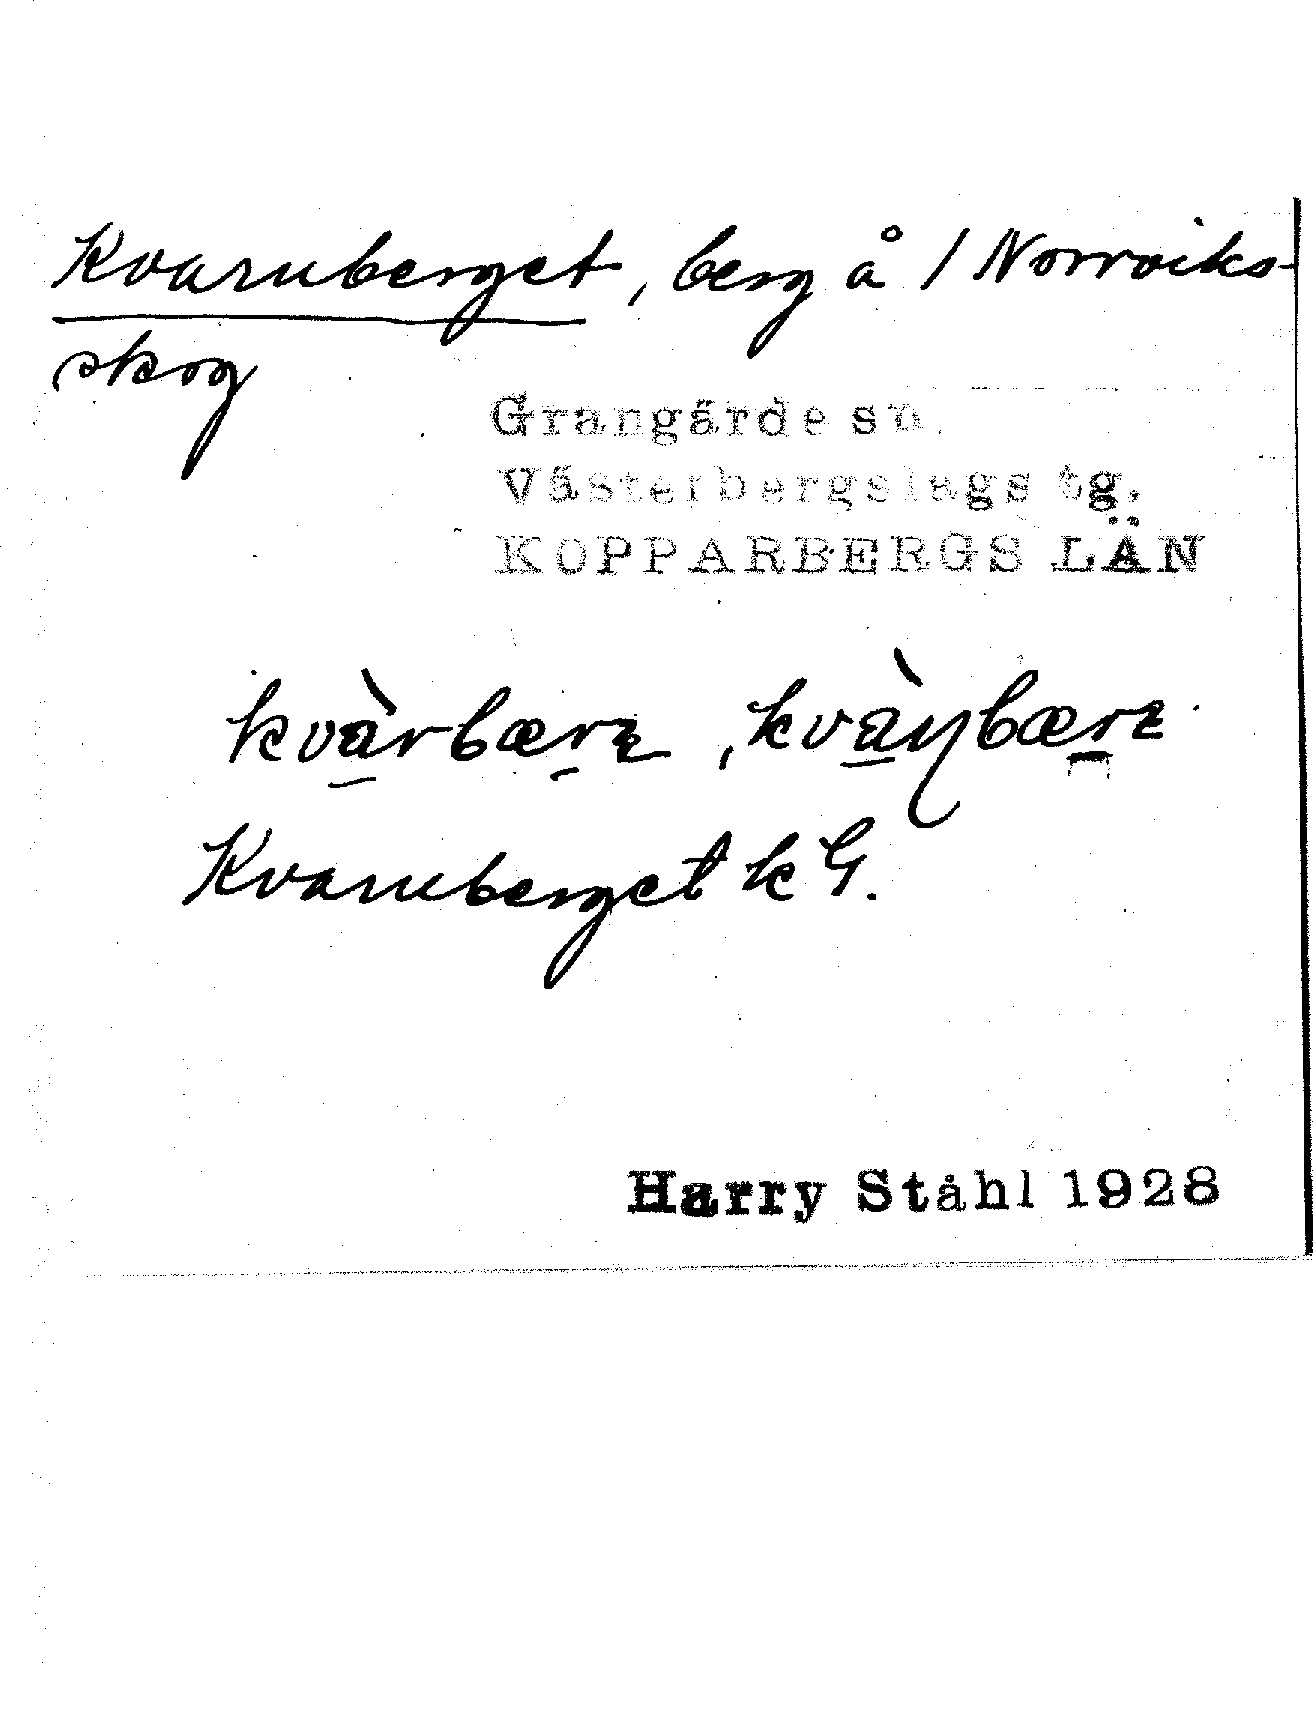 Kvarnberget, berg å / Norrviks-
skog
Grangärde sn.
Västerbergslags tg.
KOPPARBERGS LÄN
Kvarnberget k G.
Harry Ståhl 1928